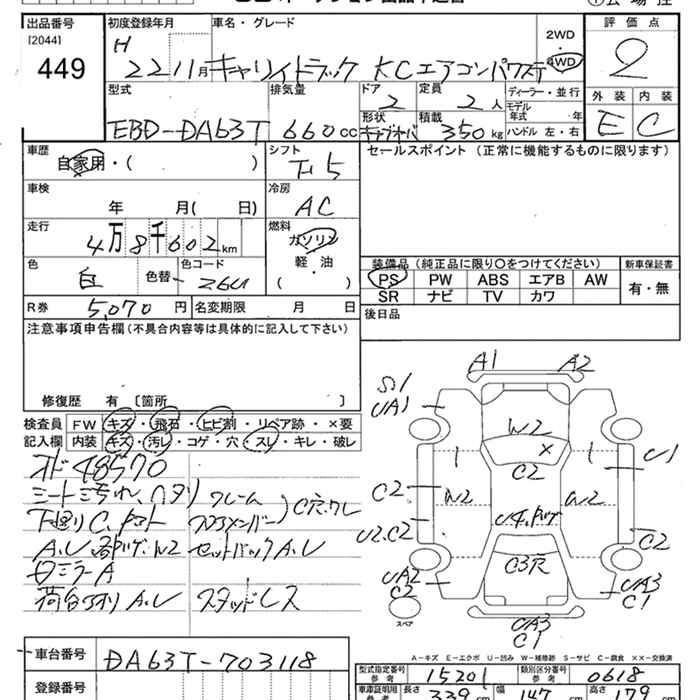 出品番号 初度登録年月 車名・グレード 評価点
[2044]
449
H 22 11月 キャリイトラック KCエアコンパワステ
2WD
4WD
2
型式 排気量 ドア 定員 ディーラー・並行
EBD-DA63T 660cc 2 2人
モデル年式 年
形状 積載 350kg
ハンドル 左・右
外装 内装
E C
車歴 シフト セールスポイント (正常に機能するものに限ります)
自家用・( )
F5
車検 冷房
年 月( 日) AC
走行 燃料
4万8千602km
ガソリン
軽・油
( )
色 色替 色コード
白 26U
装備品 (純正品に限り○をつけてください) 新車保証書
PS PW ABS エアB AW
SR ナビ TV カワ
有・無
R券 5,070円 名変期限 月 日
後日品
注意事項申告欄(不具合内容等は具体的に記入して下さい)
修復歴 有 [箇所 ]
検査員 FW キズ・飛石・ヒビ割・リペア跡・×要
記入欄 内装 キズ・汚レ・コゲ・穴・スレ・キレ・破レ
オド48570
フレーム
下廻りC
セットバックA.U
ミラーA
荷台
A.U
スタッドレス
A1 A2
UA1
W2
×
C2
U1
C2
W2
W2
C2
U2.C2
C3穴
UA2
C2
UA3
C1
スペア
UA3
C1
A-キズ E-エクボ U-凹み W-補修跡 S-サビ C-腐食 ××-交換済
車台番号 DA63T-703118
登録番号
型式指定番号 参考 15201 類別区分番号 参考 0618
車庫証明用 参考 長さ 339cm 幅 147cm 高さ 179cm